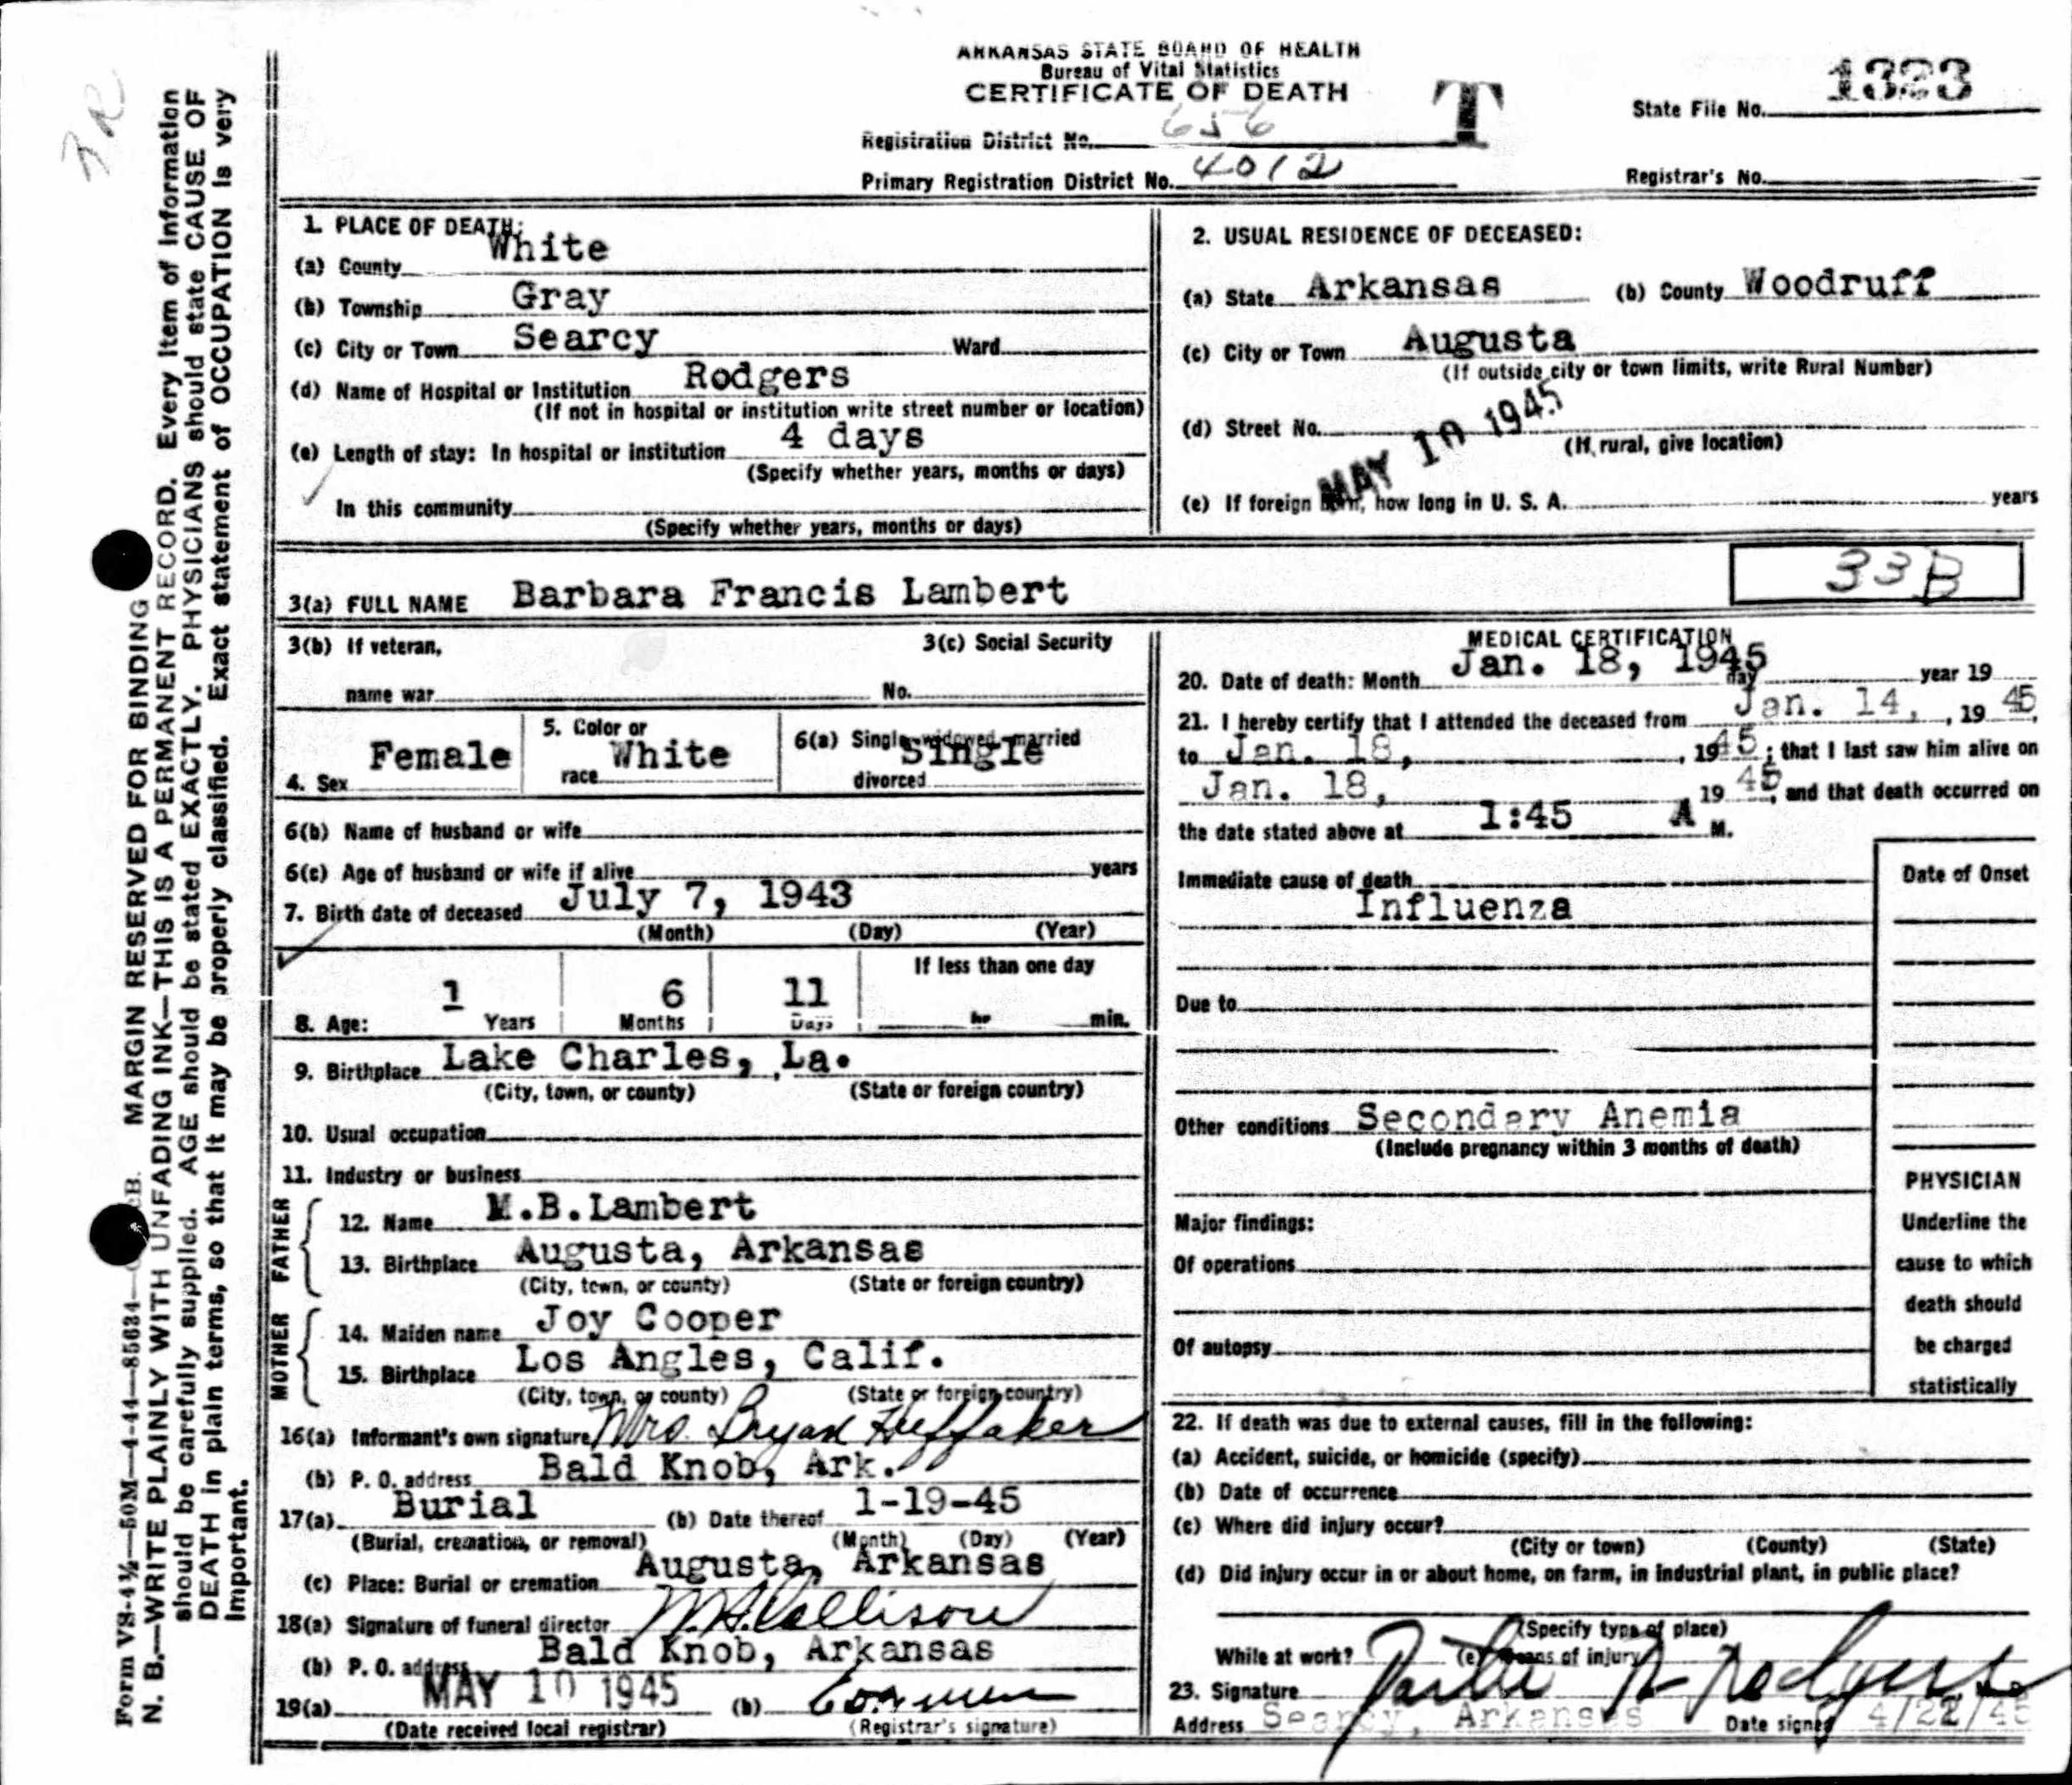 ARKANSAS STATE BOARD OF HEALTH
Bureau of Vital Statistics
CERTIFICATE OF DEATH
T
State File No. 1323
Registration District No. 656
Primary Registration District No. 4012
Registrar's No.
1. PLACE OF DEATH:
(a) County White
(b) Township Gray
(c) City or Town Searcy Ward
(d) Name of Hospital or Institution Rodgers
(If not in hospital or institution write street number or location)
(e) Length of stay: In hospital or institution 4 days
(Specify whether years, months or days)
In this community
(Specify whether years, months or days)
2. USUAL RESIDENCE OF DECEASED:
(a) State Arkansas (b) County Woodruff
(c) City or Town Augusta
(If outside city or town limits, write Rural Number)
MAY 10 1945
(d) Street No.
(If rural, give location)
(e) If foreign born, how long in U. S. A. years
3(a) FULL NAME Barbara Francis Lambert
33B
3(b) If veteran,
name war
3(c) Social Security
No.
4. Sex Female
5. Color or
race White
6(a) Single, widowed, married
divorced Single
6(b) Name of husband or wife
6(c) Age of husband or wife if alive years
7. Birth date of deceased July 7, 1943
(Month) (Day) (Year)
8. Age: 1 Years 6 Months 11 Days
If less than one day
hr min.
9. Birthplace Lake Charles, La.
(City, town, or county) (State or foreign country)
10. Usual occupation
11. Industry or business
FATHER
12. Name M.B.Lambert
13. Birthplace Augusta, Arkansas
(City, town, or county) (State or foreign country)
MOTHER
14. Maiden name Joy Cooper
15. Birthplace Los Angles, Calif.
(City, town, or county) (State or foreign country)
16(a) Informant's own signature Mrs. Bryan Heffaker
(b) P. O. address Bald Knob, Ark.
17(a) Burial (b) Date thereof 1-19-45
(Burial, cremation, or removal) (Month) (Day) (Year)
(c) Place: Burial or cremation Augusta, Arkansas
18(a) Signature of funeral director
(b) P. O. address Bald Knob, Arkansas
19(a) MAY 10 1945 (b)
(Date received local registrar) (Registrar's signature)
MEDICAL CERTIFICATION
20. Date of death: Month Jan. 18, 1945 day year 19
21. I hereby certify that I attended the deceased from Jan. 14, , 19 45,
to Jan. 18, , 1945; that I last saw him alive on
Jan. 18, 19 45, and that death occurred on
the date stated above at 1:45 A M.
Immediate cause of death
Influenza
Date of Onset
Due to
Other conditions Secondary Anemia
(Include pregnancy within 3 months of death)
Major findings:
Of operations
Of autopsy
PHYSICIAN
Underline the
cause to which
death should
be charged
statistically
22. If death was due to external causes, fill in the following:
(a) Accident, suicide, or homicide (specify)
(b) Date of occurrence
(c) Where did injury occur?
(City or town) (County) (State)
(d) Did injury occur in or about home, on farm, in industrial plant, in public place?
(Specify type of place)
While at work? (e) Means of injury
23. Signature Rodgers
Address Searcy, Arkansas Date signed 4/22/45
Form VS-4½—50M—4-44—85634—
MARGIN RESERVED FOR BINDING
N. B.—WRITE PLAINLY WITH UNFADING INK—THIS IS A PERMANENT RECORD. Every item of Information
should be carefully supplied. AGE should be stated EXACTLY. PHYSICIANS should state CAUSE OF
DEATH in plain terms, so that it may be properly classified. Exact statement of OCCUPATION is very
important.